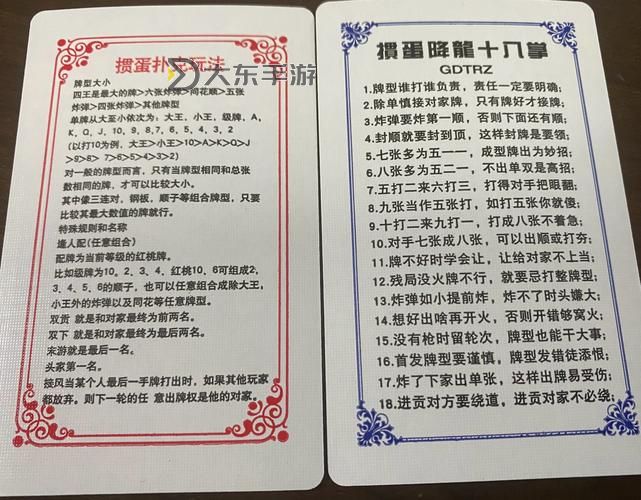 掼蛋扑克玩法
大东手游
牌型大小
四王是最大的牌>六张炸弹>同花顺>五张
炸弹>四张炸弹>其他牌型
单牌从大至小依次为:大王,小王,级牌,A,
K,Q,J,10,9,8,7,6,5,4,3,2
(以打10为例,大王>小王>10>A>K>Q>J
>9>8> 7>6>5>4>3>2)
对一般的牌型而言,只有当牌型相同和总张
数相同的牌,才可以比较大小。
其中像三连对,钢板,顺子等组合牌型,只要
比较其最大数值的牌就行。
特殊规则和名称
逢人配(任意组合)
配牌为当前等级的红桃牌。
比如级牌为10。2、3、4,红桃10、6可组成2,
3、4、5、6的顺子,也可以任意组合成除大王,
小王外的炸弹以及同花等任意牌型。
双贡 就是和对家最终为前两名。
双下 就是和对家最终为最后两名。
末游就是最后一名。
头家第一名。
接风当某个人最后一手牌打出时,如果其他玩家
都放弃。则下一轮的任 意出牌权是他的对家。
掼蛋降龍十八掌
GDTRZ
1.牌型谁打谁负责,责任一定要明确;
2.除单慎接对家牌,只有牌好才接牌;
3.炸弹要炸第一顺,否则下面还有顺;
4.封顺就要封到顶,这样封牌是要领;
5.七张多为五一一,成型牌出为妙招;
6.八张多为五二一,不出单双是高招;
7.五打二来六打三,打得对手把眼翻;
8.九张当作五张打,如打五张你就傻;
9.十打二来九打一,打成八张不着急;
10.对手七张成八张,可以出顺或打夯;
11.牌不好时学会让,让给对家不上当;
12.残局没火牌不行,就要忌打整牌型;
13.炸弹如小提前炸,炸不了时头嫌大;
14.想好出啥再开火,否则开错够窝火;
15.没有枪时留轮次,牌型也能干大事;
16.首发牌型要谨慎,牌型发错徒添恨;
17.炸了下家出单张,这样出牌易受伤;
18.进贡对方要绕道,进贡对家不必绕;